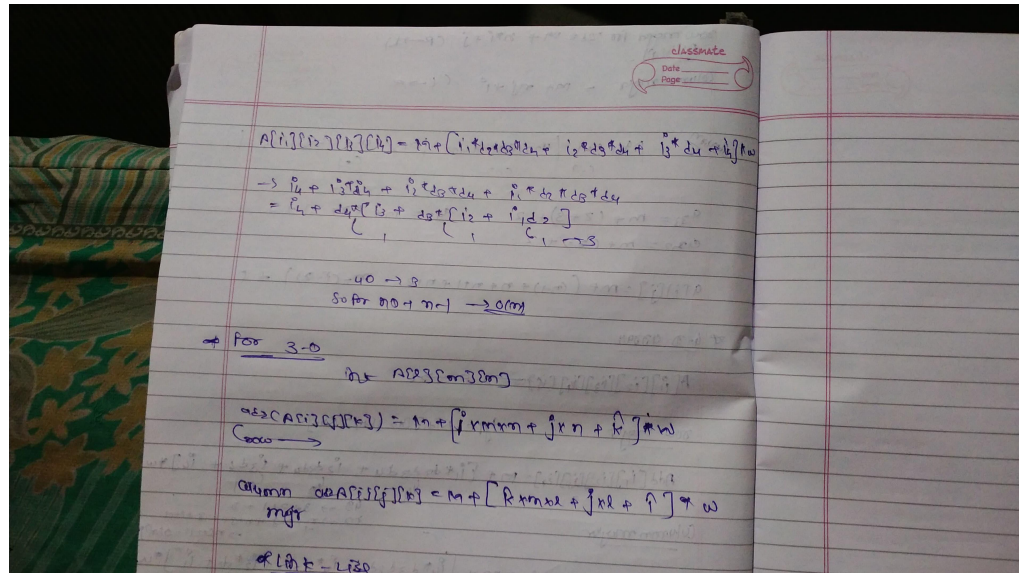 classmate
Date
Page
A[i1][i2][i3][i4] = m + [i1*d2*d3*d4 + i2*d3*d4 + i3*d4 + i4]*w
→ i4 + i3*d4 + i2*d3*d4 + i1*d2*d3*d4
= i4 + d4*[i3 + d3*[i2 + i1d2]
→ 3
4D → 3
So for nD → n-1 → O(n)
→ For 3-D
int A[l][m][n]
add(A[i][j][k]) = m + [i×m×n + j×n + k]*w
row →
column add A[i][j][k] = m + [k×m×l + j×l + i] * w
mjr
* Link-List